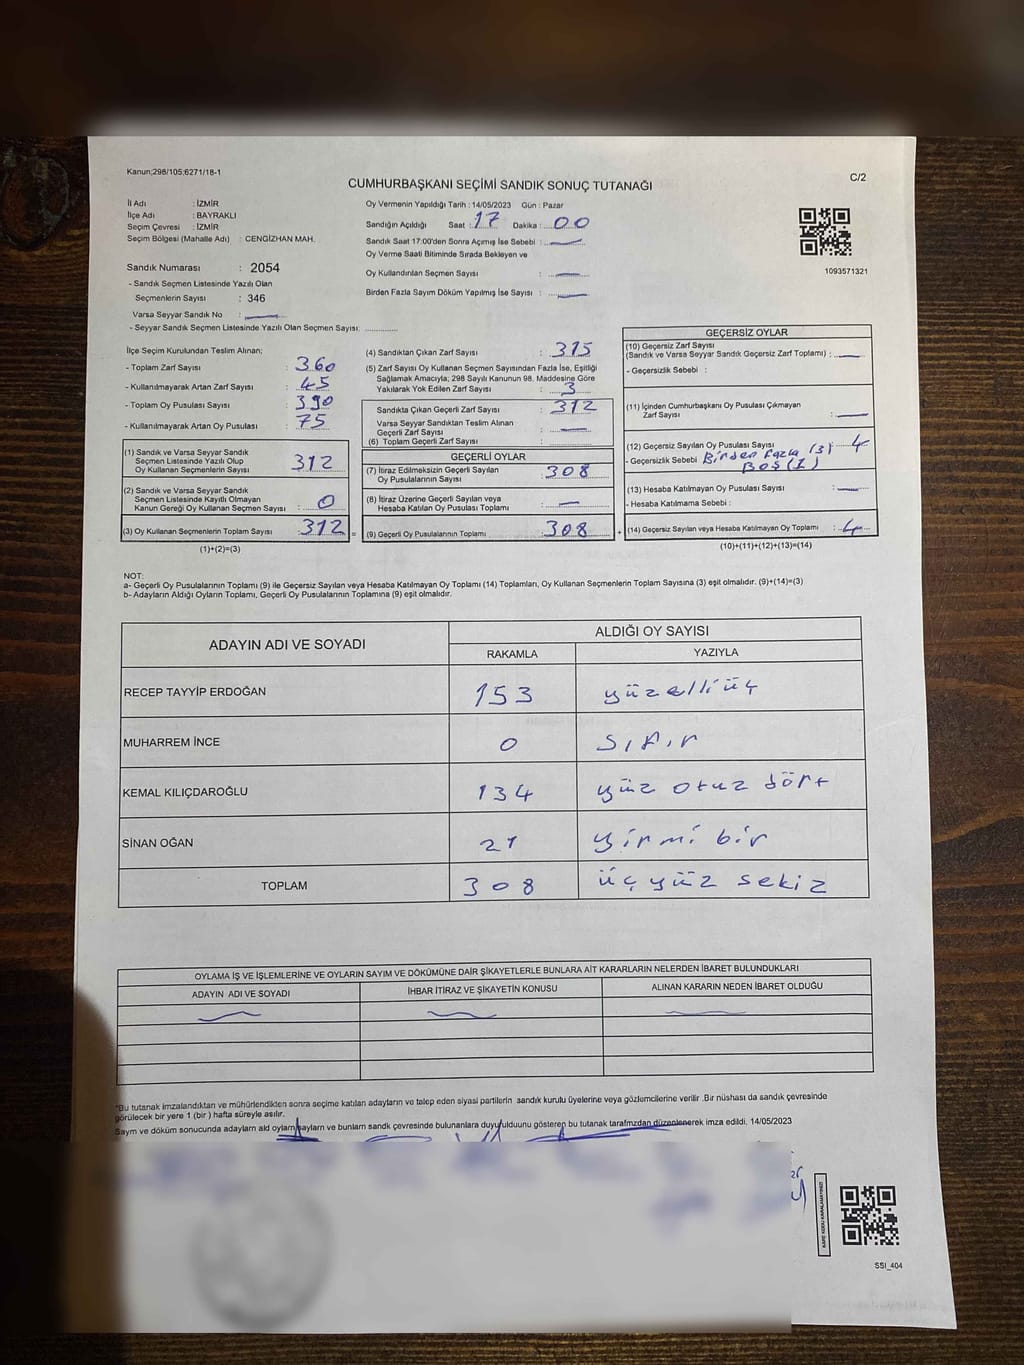 Kanun;298/105;6271/18-1
C/2
CUMHURBAŞKANI SEÇİMİ SANDIK SONUÇ TUTANAĞI
İl Adı : İZMİR
İlçe Adı : BAYRAKLI
Seçim Çevresi : İZMİR
Seçim Bölgesi (Mahalle Adı) : CENGİZHAN MAH.
Sandık Numarası : 2054
- Sandık Seçmen Listesinde Yazılı Olan
Seçmenlerin Sayısı : 346
Varsa Seyyar Sandık No :
- Seyyar Sandık Seçmen Listesinde Yazılı Olan Seçmen Sayısı:
Oy Vermenin Yapıldığı Tarih : 14/05/2023 Gün : Pazar
Sandığın Açıldığı Saat : 17 Dakika : 00
Sandık Saat 17:00'den Sonra Açımış İse Sebebi :
Oy Verme Saati Bitiminde Sırada Bekleyen ve
Oy Kullandırılan Seçmen Sayısı :
Birden Fazla Sayım Döküm Yapılmış İse Sayısı :
1093571321
İlçe Seçim Kurulundan Teslim Alınan;
- Toplam Zarf Sayısı : 360
- Kullanılmayarak Artan Zarf Sayısı : 45
- Toplam Oy Pusulası Sayısı : 390
- Kullanılmayarak Artan Oy Pusulası : 75
(1) Sandık ve Varsa Seyyar Sandık
Seçmen Listesinde Yazılı Olup
Oy Kullanan Seçmenlerin Sayısı 312
(2) Sandık ve Varsa Seyyar Sandık
Seçmen Listesinde Kayıtlı Olmayan
Kanun Gereği Oy Kullanan Seçmen Sayısı : 0
(3) Oy Kullanan Seçmenlerin Toplam Sayısı : 312 =
(1)+(2)=(3)
(4) Sandıktan Çıkan Zarf Sayısı : 315
(5) Zarf Sayısı Oy Kullanan Seçmen Sayısından Fazla İse, Eşitliği
Sağlamak Amacıyla; 298 Sayılı Kanunun 98. Maddesine Göre
Yakılarak Yok Edilen Zarf Sayısı : 3
Sandıkta Çıkan Geçerli Zarf Sayısı : 312
Varsa Seyyar Sandıktan Teslim Alınan
Geçerli Zarf Sayısı :
(6) Toplam Geçerli Zarf Sayısı :
GEÇERLİ OYLAR
(7) İtiraz Edilmeksizin Geçerli Sayılan
Oy Pusulalarının Sayısı : 308
(8) İtiraz Üzerine Geçerli Sayılan veya
Hesaba Katılan Oy Pusulası Toplamı :
(9) Geçerli Oy Pusulalarının Toplamı : 308 +
GEÇERSİZ OYLAR
(10) Geçersiz Zarf Sayısı
(Sandık ve Varsa Seyyar Sandık Geçersiz Zarf Toplamı) :
- Geçersizlik Sebebi :
(11) İçinden Cumhurbaşkanı Oy Pusulası Çıkmayan
Zarf Sayısı :
(12) Geçersiz Sayılan Oy Pusulası Sayısı : 4
- Geçersizlik Sebebi Birden Fazla (3)
BOŞ (1)
(13) Hesaba Katılmayan Oy Pusulası Sayısı :
- Hesaba Katılmama Sebebi :
(14) Geçersiz Sayılan veya Hesaba Katılmayan Oy Toplamı : 4
(10)+(11)+(12)+(13)=(14)
NOT:
a- Geçerli Oy Pusulalarının Toplamı (9) ile Geçersiz Sayılan veya Hesaba Katılmayan Oy Toplamı (14) Toplamları, Oy Kullanan Seçmenlerin Toplam Sayısına (3) eşit olmalıdır. (9)+(14)=(3)
b- Adayların Aldığı Oyların Toplamı, Geçerli Oy Pusulalarının Toplamına (9) eşit olmalıdır.
ADAYIN ADI VE SOYADI ALDIĞI OY SAYISI
RAKAMLA YAZIYLA
RECEP TAYYİP ERDOĞAN 153 yüzelliüç
MUHARREM İNCE 0 sıfır
KEMAL KILIÇDAROĞLU 134 yüz otuz dört
SİNAN OĞAN 21 yirmi bir
TOPLAM 308 üçyüz sekiz
OYLAMA İŞ VE İŞLEMLERİNE VE OYLARIN SAYIM VE DÖKÜMÜNE DAİR ŞİKAYETLERLE BUNLARA AİT KARARLARIN NELERDEN İBARET BULUNDUKLARI
ADAYIN ADI VE SOYADI İHBAR İTİRAZ VE ŞİKAYETİN KONUSU ALINAN KARARIN NEDEN İBARET OLDUĞU
*Bu tutanak imzalandıktan ve mühürlendikten sonra seçime katılan adayların ve talep eden siyasi partilerin sandık kurulu üyelerine veya gözlemcilerine verilir .Bir nüshası da sandık çevresinde
görülecek bir yere 1 (bir ) hafta süreyle asılır.
Sayım ve döküm sonucunda adayların aldı oyların bunların sandık çevresinde bulunanlara duyurulduunu gösteren bu tutanak tarafmzdan düzenlenerek imza edildi. 14/05/2023
SSI_404